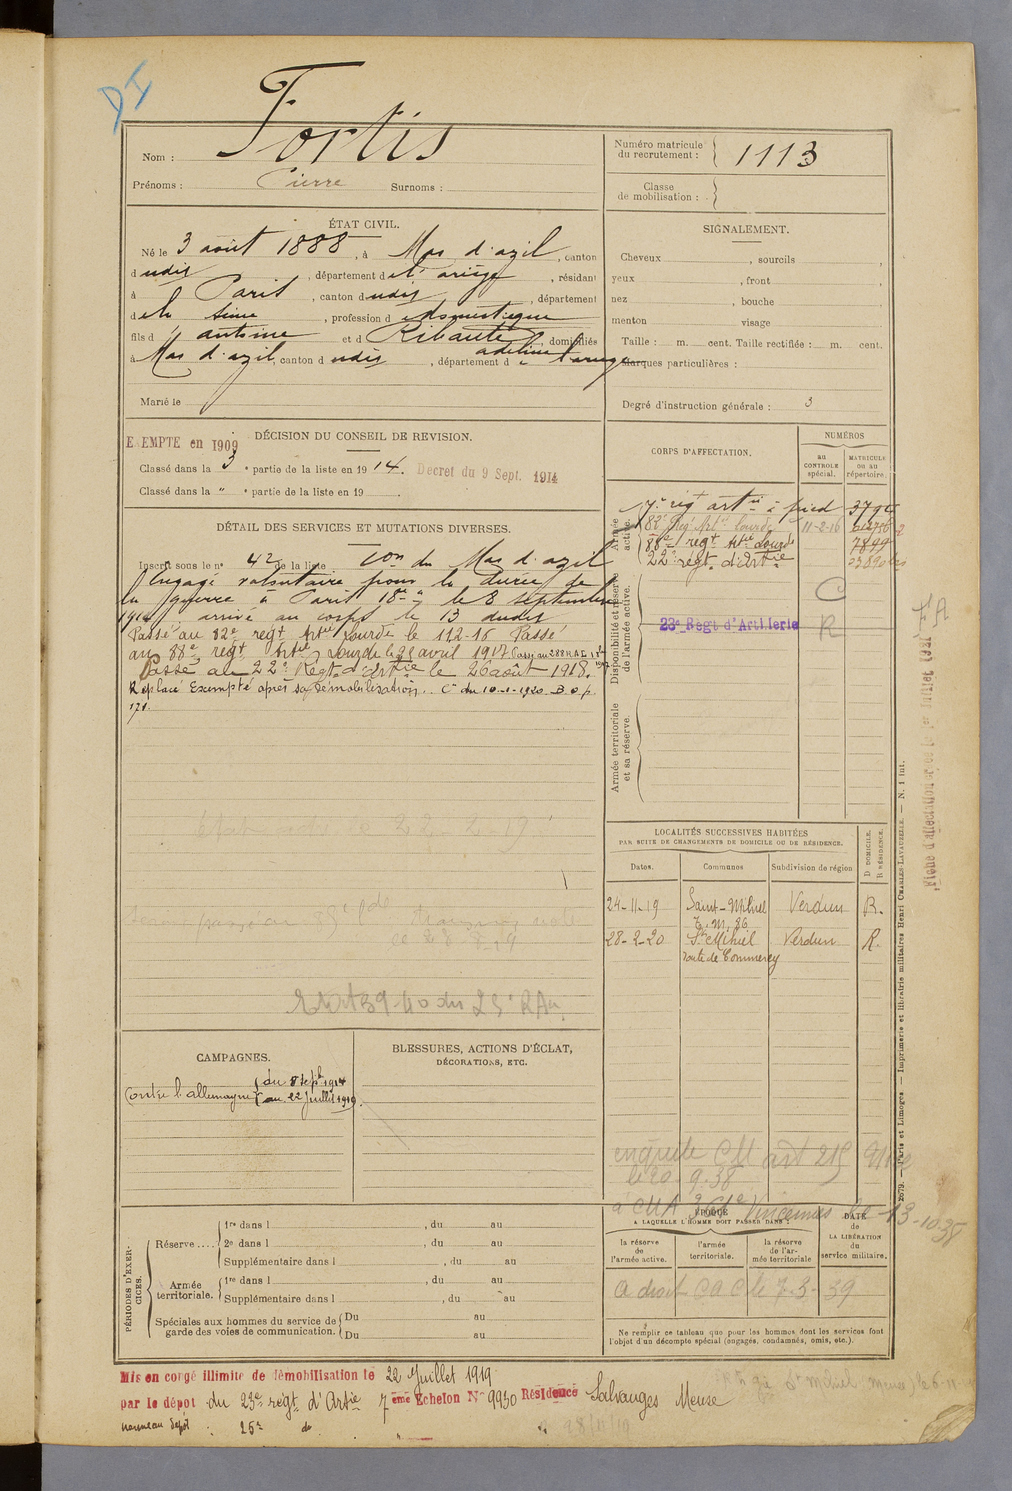 DI
Nom : Fortis
Prénoms : Pierre Surnoms :
Numéro matricule du recrutement : 1113
Classe de mobilisation :
ÉTAT CIVIL.
Né le 3 août 1888, à Mas d'azil, canton
dudis, département de l'ariège, résidant
à Paris, canton dudis, département
de la Seine, profession de domestique
fils d' antoine et d Ribaute adeline, domiciliés
à Mas d'azil, canton dudis, département d l'ariège
Marié le
SIGNALEMENT.
Cheveux , sourcils ,
yeux , front ,
nez , bouche
menton visage
Taille : m. cent. Taille rectifiée : m. cent.
Marques particulières :
Degré d'instruction générale : 3
EXEMPTE en 1909
DÉCISION DU CONSEIL DE REVISION.
Classé dans la 3e partie de la liste en 1914. Decret du 9 Sept. 1914
Classé dans la " e partie de la liste en 19
DÉTAIL DES SERVICES ET MUTATIONS DIVERSES.
Inscrit sous le n° 42 de la liste con du Mas d'azil
Engagé volontaire pour la durée de
la guerre à Paris 18e le 8 septembre
1914 arrivé au corps le 13 dudit
Passé au 82e regt Artie Lourde le 11-2-16 Passé
au 88e regt Artie Lourde le 28 avril 1917 Passé au 288 R.A.L.
Passé au 22e Régt d'Artie le 26 août 1918.
Replacé Exempté après sa démobilisation. C. du 10-1-1920 B.O.p.
171.
CORPS D'AFFECTATION.
NUMÉROS
au CONTROLE spécial.
MATRICULE ou au répertoire.
Armée active.
7e rég artie à pied
82e Rég Artie Lourde 11-2-16
88e regt Artie Lourde 7899
22e régt d'Artie
Disponibilité et réserve de l'armée active.
C
23e Régt d'Artillerie R
Armée territoriale et sa réserve.
LOCALITÉS SUCCESSIVES HABITÉES
PAR SUITE DE CHANGEMENTS DE DOMICILE OU DE RÉSIDENCE.
Dates. Communes Subdivision de région D DOMICILE. R RÉSIDENCE.
24-11-19 Saint-Mihiel Verdun R.
28-2-20 St Mihiel Verdun R.
route de Commercy
CAMPAGNES.
Contre l'allemagne du 8 Sept 1914
au 22 Juillet 1919.
BLESSURES, ACTIONS D'ÉCLAT,
DÉCORATIONS, ETC.
enquête CM art 215
le 20.9.38
à CMA 3e Cie Vincennes le -13-10-38
ÉPOQUE
A LAQUELLE L'HOMME DOIT PASSER DANS :
la réserve de l'armée active.
l'armée territoriale.
la réserve de l'armée territoriale
DATE de LA LIBÉRATION du service militaire.
a droit CAC le 7-3-39
Ne remplir ce tableau que pour les hommes dont les services font
l'objet d'un décompte spécial (engagés, condamnés, omis, etc.).
PÉRIODES D'EXERCICES.
Réserve....
1re dans l , du au
2e dans l , du au
Supplémentaire dans l , du au
Armée territoriale.
1re dans l , du au
Supplémentaire dans l , du au
Spéciales aux hommes du service de garde des voies de communication.
Du au
Du au
Mis en congé illimité de démobilisation le 22 Juillet 1919
par le dépôt du 23e régt d'Artie 7eme Echelon N° 9950 Résidence Salvanges Meuse
nouveau dépôt : 25e do
2679. — Paris et Limoges. — Imprimerie et librairie militaires Henri CHARLES-LAVAUZELLE. — N. 1 int.